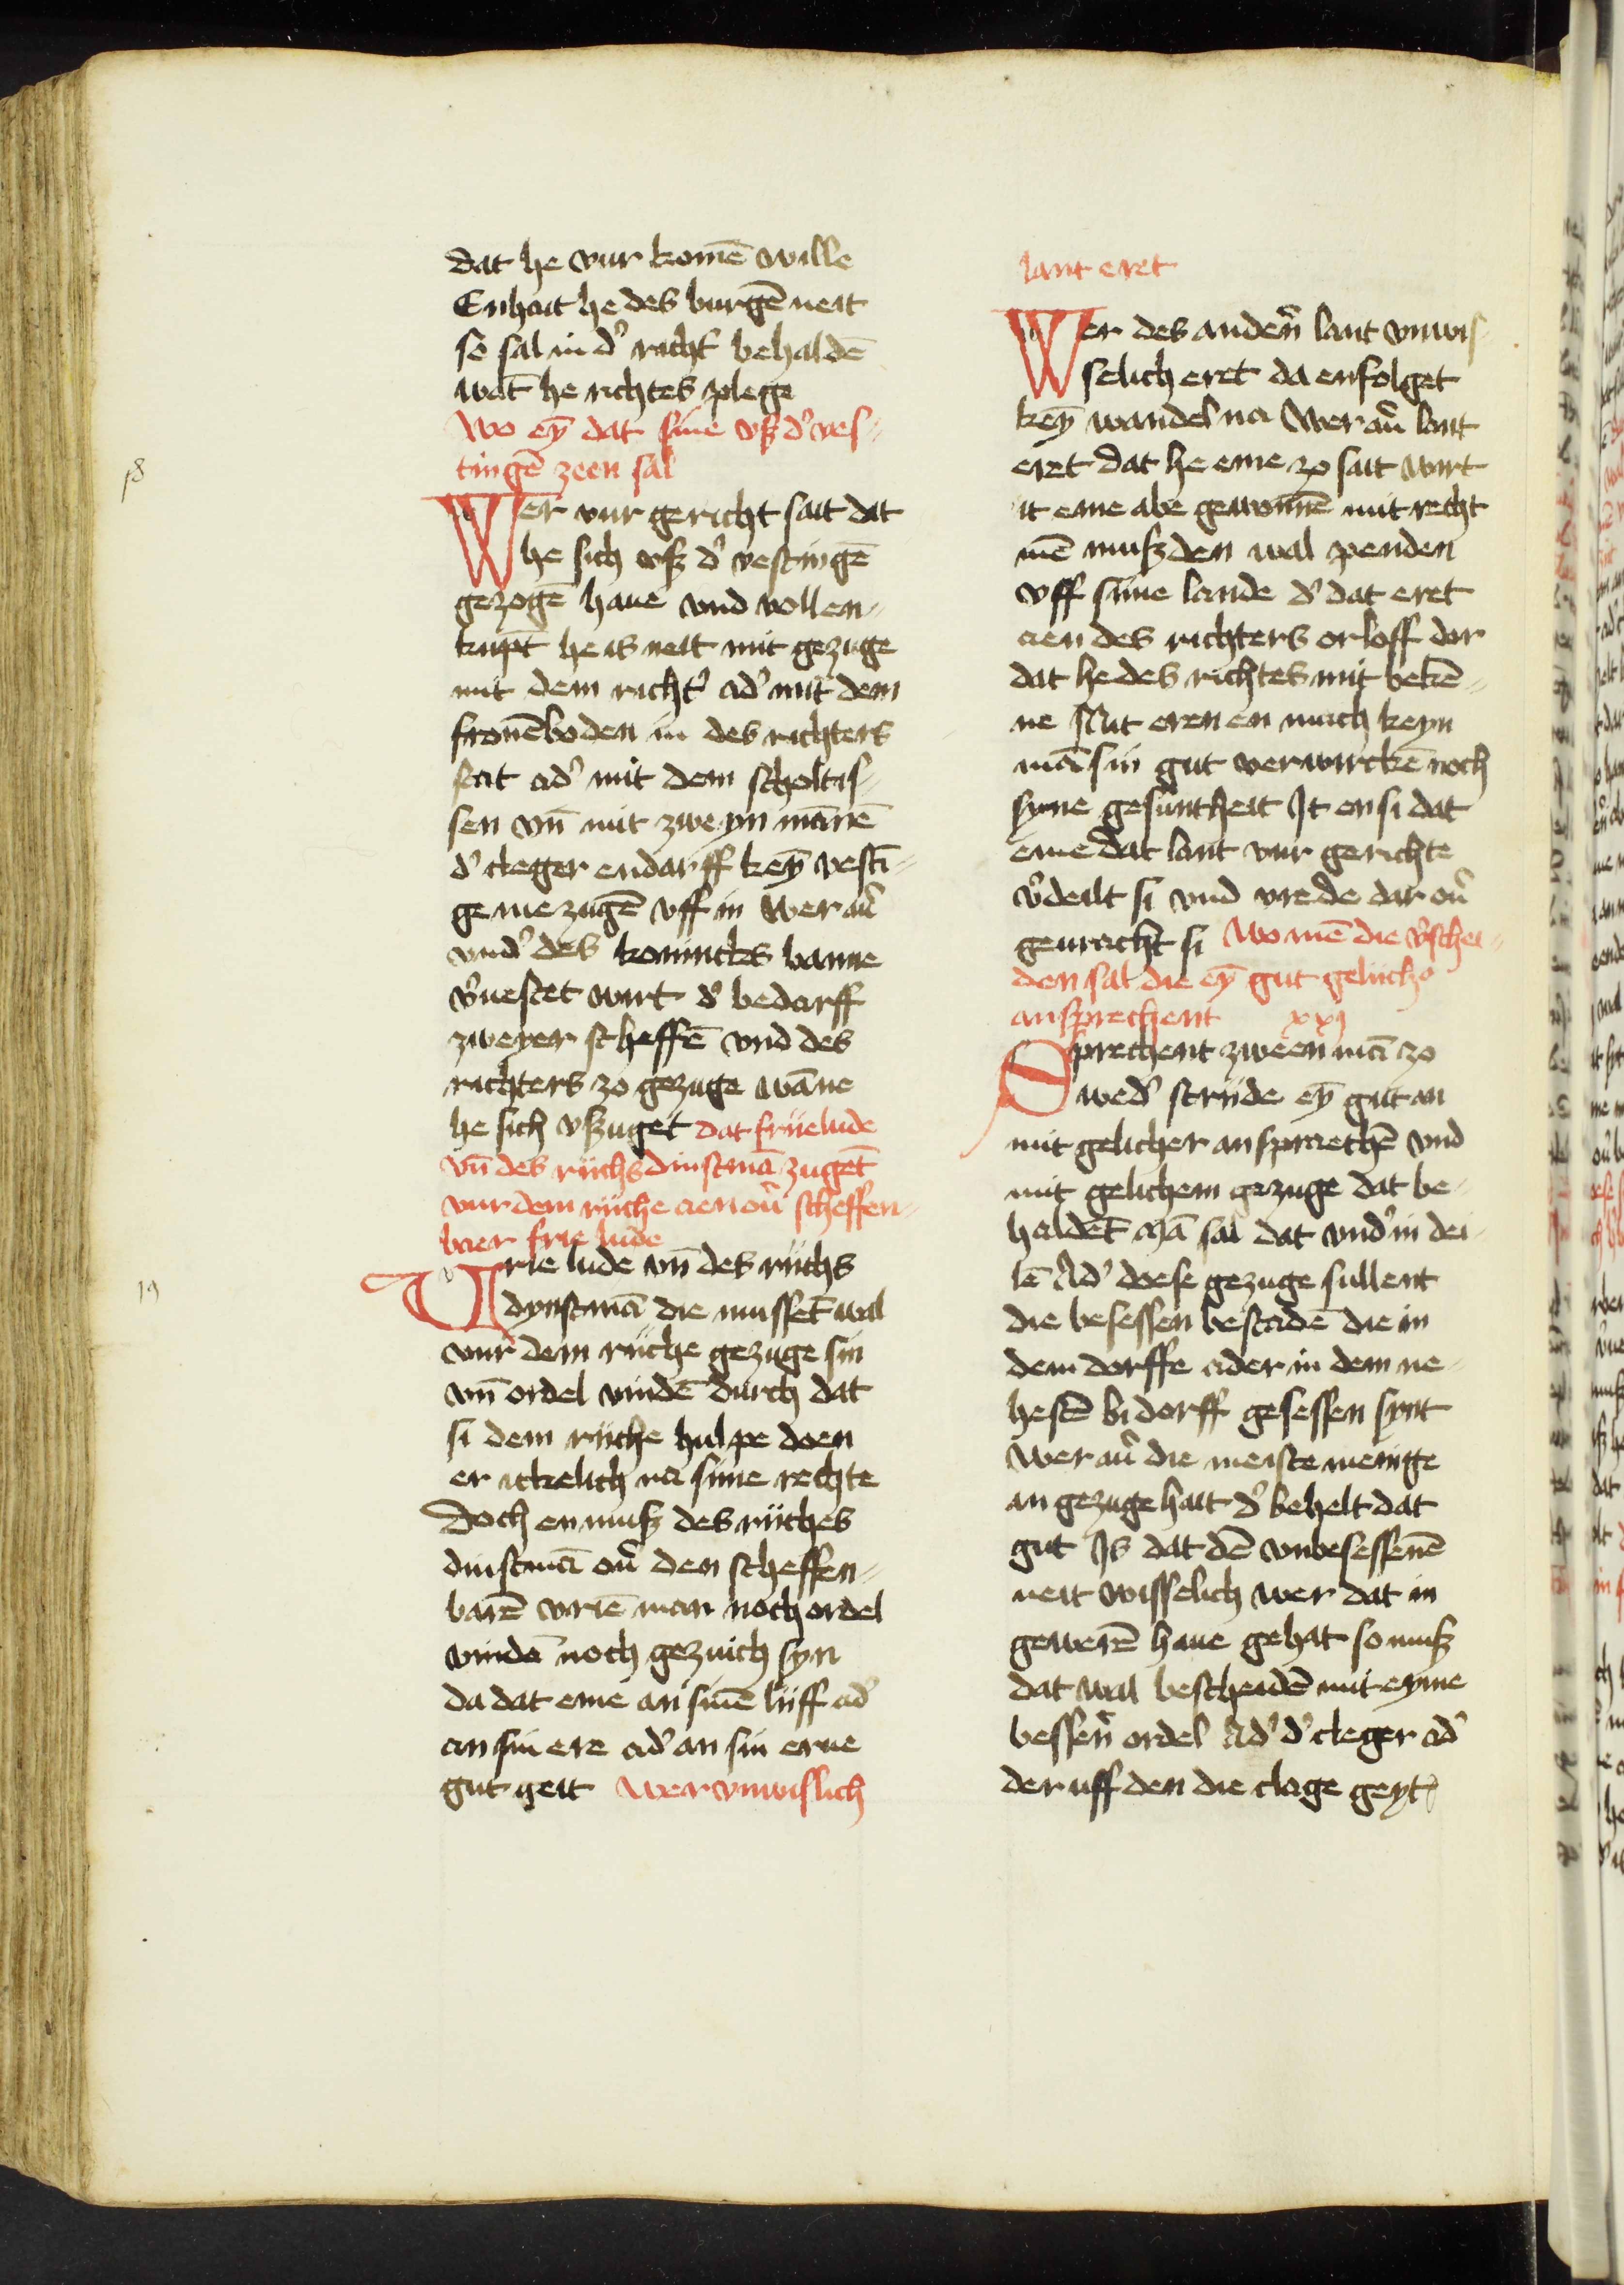 dat he vur komē wille
Enhait he des burgē neit
so sal in d' richt' behaldē
wāt he richtes plege
Wo eȳ dat sine vß d' ves=
tingē zeen sal
18
Wer vur gericht sait dat
he sich vß d' vestingē
gezogē haue vnd vollen=
kūpt he is neit mit gezuge
mit dem richt' ad' mit dem
fronēboden in des richters
stat ad' mit dem scholtis=
sen vn̄ mit zweyn mānē
d' cleger endarff keȳ vesti=
ge me zugē vff in Wer au'
vnd' des konincks banne
v'uestet wirt d' bedarff
zweyer scheffē vnd des
richters zo gezuge wāne
he sich vßzuget dat friie lude
vn̄ des riichs dinstmā zugēt
vur dem riiche aen ou' scheffen=
baer frie lude
19
Vrie lude vn̄ des riichs
dynstmā die mussēt wal
vur dem riiche gezuge sin
vn̄ ordel vindē durch dat
si dem riiche hulpe doen
er ickelich na sime rechte
Doch en muß des riiches
dinstmā ou' den scheffen=
barē vriē man noch ordel
vinde noch gezuich syn
da dat eme an sinē liiff ad'
an sin ere ad' an sin erue
gut geit Wer vnwislich
lant eret
Wer des andern̄ lant vnwis
selich eret da enfolget
keȳ wandel na Wer au' lant
eret dat he eme zo sait wirt
it eme abe gewonnē mit recht
mē muß den wal penden
vff sime lande d' dat eret
aen des richters orloff dar
dat he des richtes mit bekē=
ne Mit eren en mach keyn
mā sin gut verwirckē noch
syne gesuntheit It en si dat
eme dat lant vur gerichte
v'deilt si vnd vrede dar ou'
geuracht si Wo mē die v'schei=
den sal die eȳ gut geliich
ansprechent xxj
Sprechent zween mā zo
wed' striide eȳ gut an
mit gelicher anspraechē vnd
mit gelichem gezuge dat be=
haldēt Mā sal dat vnd' in dei=
lē Ad' doese gezuge sullent
die besessen bestadē die in
dem dorffe ader in dem ne=
hestē bi dorff gesessen synt
Wer au' die meiste menige
an gezuge hait d' behelt dat
gut Is dat dē vmbesessenē
neit wisselich wer dat in
gewerē haue gehat so muß
dat wal bescheidē mit eyme
bessern̄ ordel Ad' d' cleger ad'
der uff den die clage geyt